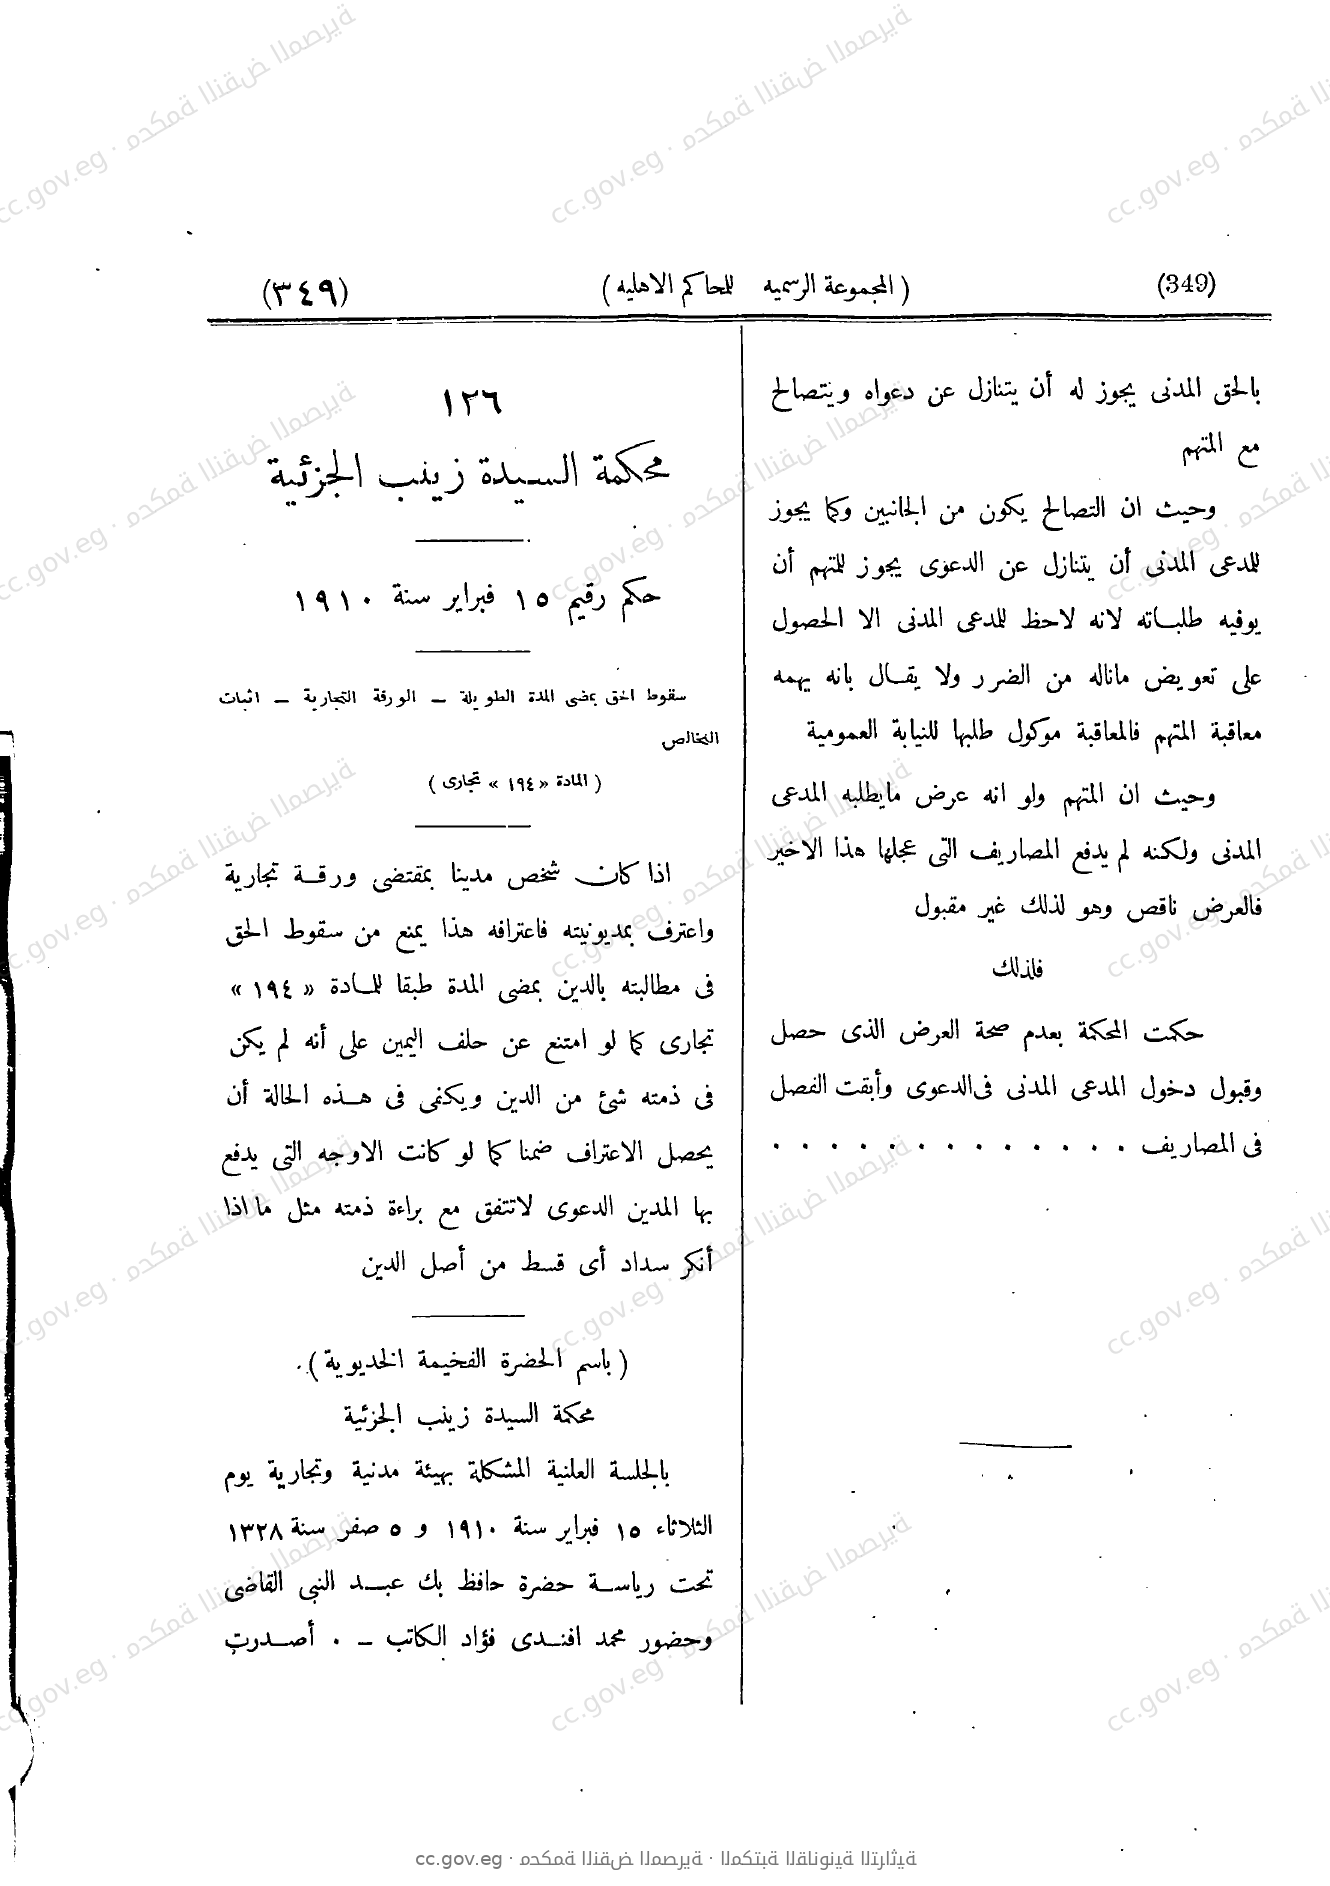 (349)
( المجموعة الرسميه للمحاكم الاهليه )
(٣٤٩)
بالحق المدنى يجوز له أن يتنازل عن دعواه ويتصالح
مع المتهم
وحيث ان التصالح يكون من الجانبين وكما يجوز
للمدعى المدنى أن يتنازل عن الدعوى يجوز للمتهم أن
يوفيه طلباته لانه لاحظ للمدعى المدنى الا الحصول
على تعويض ماناله من الضرر ولا يقال بانه يهمه
معاقبة المتهم فالمعاقبة موكول طلبها للنيابة العمومية
وحيث ان المتهم ولو انه عرض مايطلبه المدعى
المدنى ولكنه لم يدفع المصاريف التى عجلها هذا الاخير
فالعرض ناقص وهو لذلك غير مقبول
فلذلك
حكمت المحكمة بعدم صحة العرض الذى حصل
وقبول دخول المدعى المدنى فى الدعوى وأبقت الفصل
فى المصاريف . . . . . . . . . . . . .
١٢٦
محكمة السيدة زينب الجزئية
حكم رقيم ١٥ فبراير سنة ١٩١٠
سقوط الحق بمضى المدة الطويلة – الورقة التجارية – اثبات
التخالص
( المادة « ١٩٤ » تجارى )
اذا كان شخص مدينا بمقتضى ورقة تجارية
واعترف بمديونيته فاعترافه هذا يمنع من سقوط الحق
فى مطالبته بالدين بمضى المدة طبقا للمادة « ١٩٤ »
تجارى كما لو امتنع عن حلف اليمين على أنه لم يكن
فى ذمته شئ من الدين ويكفى فى هذه الحالة أن
يحصل الاعتراف ضمنا كما لو كانت الاوجه التى يدفع
بها المدين الدعوى لاتتفق مع براءة ذمته مثل ما اذا
أنكر سداد أى قسط من أصل الدين
( باسم الحضرة الفخيمة الخديوية )
محكمة السيدة زينب الجزئية
بالجلسة العلنية المشكلة بهيئة مدنية وتجارية يوم
الثلاثاء ١٥ فبراير سنة ١٩١٠ و ٥ صفر سنة ١٣٢٨
تحت رياسة حضرة حافظ بك عبد النبى القاضى
وحضور محمد افندى فؤاد الكاتب – ٠ أصدرت
cc.gov.eg · محكمة النقض المصرية · المكتبة القانونية التراثية